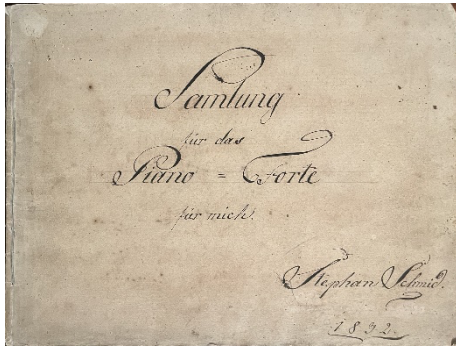 Samlung
für das
Piano = Forte
für mich.
Stephan Schmid.
1832